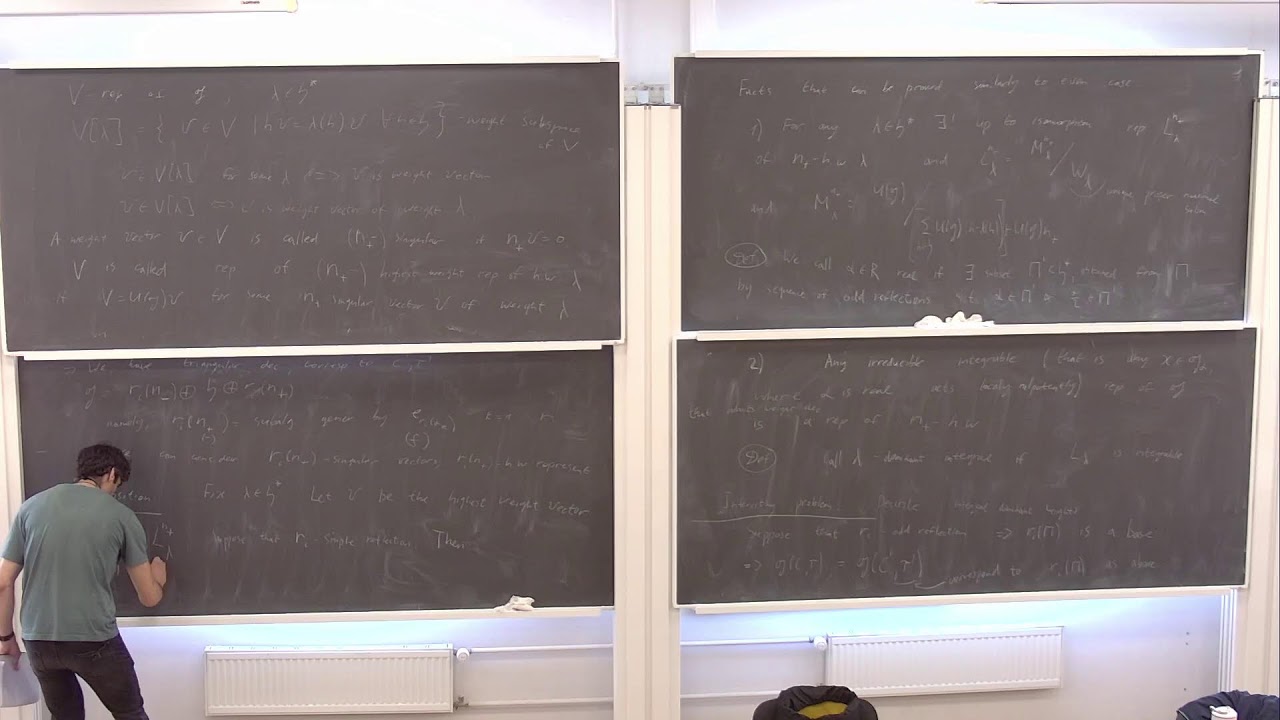 V - rep as of g, λ ∈ h*
V[λ] = { v ∈ V | hv = λ(h)v ∀ h ∈ h } - weight subspace of V
v ∈ V[λ] for some λ <=> v is weight vector
v ∈ V[λ] <=> v is weight vector of weight λ
A weight vector v ∈ V is called (n₊-) singular if n₊v = 0
V is called rep of (n₊-) highest weight rep of h w λ
if V = U(g)v for some n₊ singular vector v of weight λ
=> We have triangular dec corresp to C', τ'
g = rᵢ(n₋) ⊕ h ⊕ rᵢ(n₊)
namely, rᵢ(n₊) = subalg gener by
can consider rᵢ(n₊)-singular vectors, rᵢ(n₊)-h w represent
Fix λ ∈ h* Let v be the highest weight vector
L_λ^{n₊} suppose that rᵢ - simple reflection. Then
Facts that can be proved similarly to even case
1) For any λ ∈ h* ∃! up to isomorphism rep L_λ^{n₊}
of n₊-h w λ and L_λ^{n₊} = M_λ^{n₊} / W_λ
unique proper maximal subm
and M_λ^{n₊} = U(g) / [∑ U(g)(h-λ(h))] + U(g)n₊
Def We call α ∈ R real if ∃ subset Π' ⊂ h*, obtained from Π
by sequence of odd reflections s.t. α ∈ Π' or α/2 ∈ Π'
2) Any irreducible integrable (that is any x ∈ g_α,
where α is real acts locally nilpotently) rep of g
that admits weight dec
is a rep of n₊-h w
Def Call λ - dominant integral if L_λ is integrable
Interesting problem: Describe integral dominant weights
Suppose that rᵢ odd reflection => rᵢ(Π) is a base
=> g(C, τ) = g(C', τ') correspond to rᵢ(Π) as above